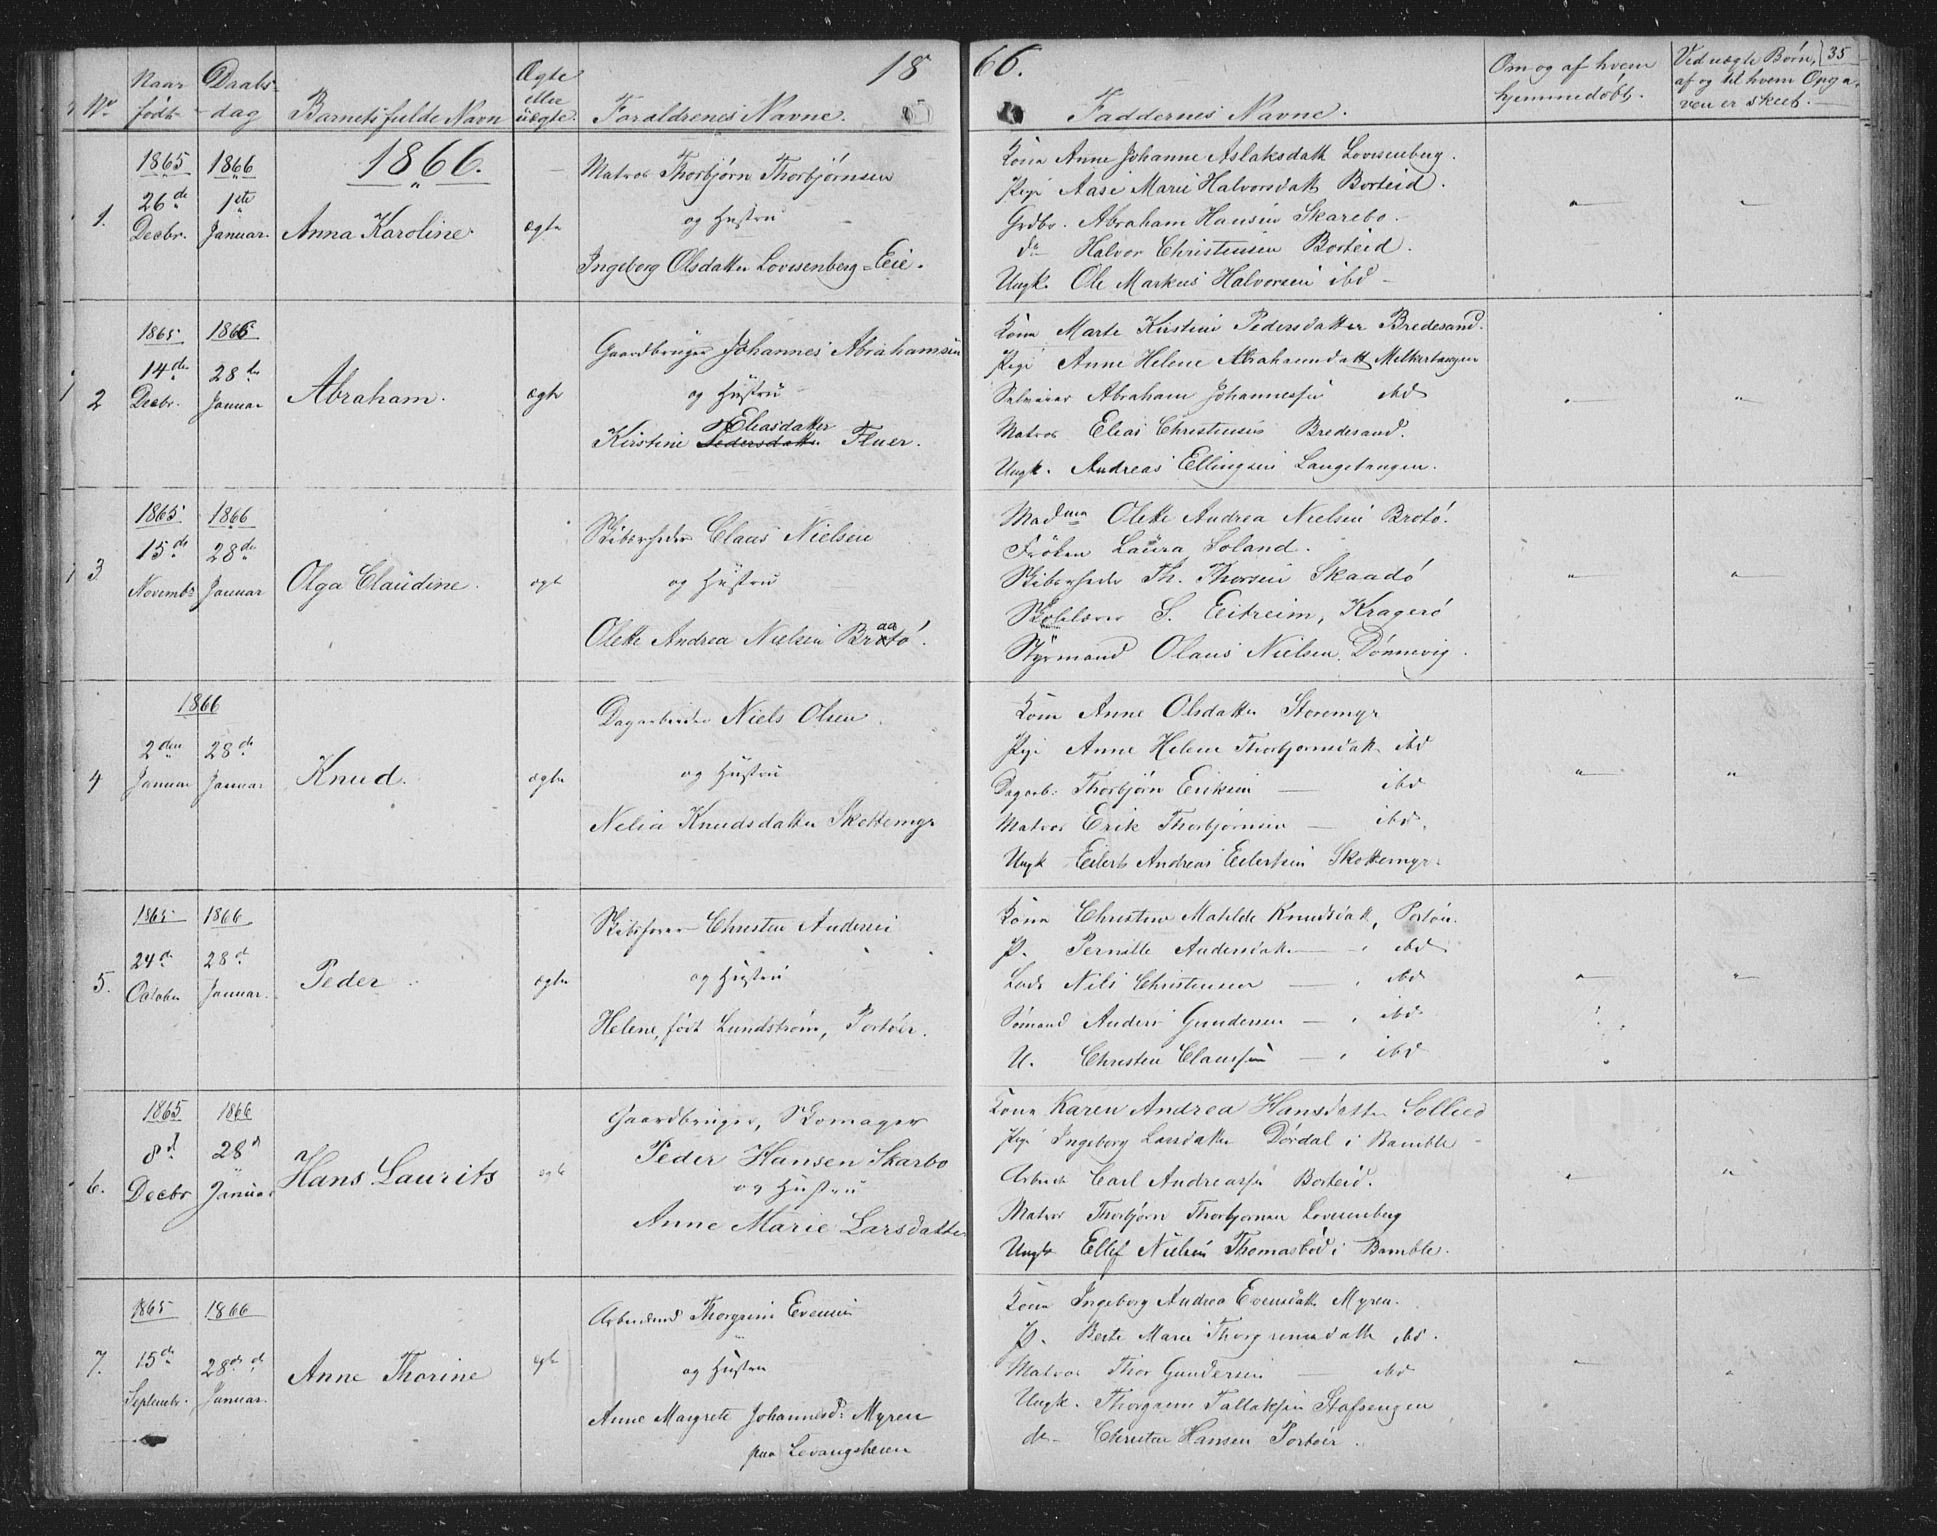 18 66.
35
No
Naar født
Daabs-dag
Barnets fulde Navn
Ægte eller uægte.
Foraldrenes Navne.
Faddernes Navne.
Om og af hvem hjemmedøbt.
Ved uægte Børn, af og til hvem Opgaven er skeet.
1866.
1.
1865 26de Decbr.
1866 1ste Januar.
Anna Karoline.
ægte
Matros Thorbjørn Thorbjørnsen
og Hustru
Ingeborg Olsdatter Lovisenberg-Eie.
Kona Anne Johanne Aslaksdatt Lovisenberg.
Pige Aase Marie Halvorsdatt Borteid.
Grdbr. Abraham Hansen Skarebo.
do Halvor Christensen Borteid.
Ungk. Ole Markus Halvorsen ibd
2
1865 14de Decbr.
1866 28de Januar
Abraham.
ægte
Gaardbruger Johannes Abrahamsen
og Hustru
Eliasdatter
Kirstine Pedersdatter Fluer.
Kona Marte Kirstine Pedersdatter Bredesand.
Pige Anne Helene Abrahamsdatt Melkertangen
Abraham Johannessen ibd
Matros Elias Christensen Bredesand.
Ungk. Andreas Ellingsen Langetangen.
3
1865 15de Novembr
1866 28de Januar
Olga Claudine.
ægte
Skibsrheder Claus Nielsen
og Hustru
aa
Olette Andrea Nielsen Brotø.
Madma Olette Andrea Nielsen Brotø.
Frøken Laura Soland.
Skibsrheder Th. Thorsen Skaadø
Skolelærer S. Eitreim, Kragerø
Styrmand Olaus Nielsen, Dønnevig.
4
1866
2den Januar
28de Januar
Knud.
ægte
Dagarbeider Niels Olsen.
og Hustru
Nelia Knudsdatter Skottemyr
Kona Anne Olsdatter Storemyr
Pige Anne Helene Thorbjørnsdatt ibd
Dagarb: Thorbjørn Eriksen — ibd
Matros Erik Thorbjørnsen — ibd.
Ungk Eilert Andreas Eilertsen Skottemyr.
5.
1865 24de October
1866 28de Januar.
Peder
ægte
Skibsfører Christen Andersen
og Hustru
Helene, født Lundstrøm, Portøer.
Kona Christine Mathilde Knudsdatt, Portøer.
P. Pernille Andersdatter — ibd
Lods Nils Christensen — ibd
Sømand Anders Gundersen — ibd
U. Christen Claussen — ibd
6.
1865 8de Decbr
1866 28de Januar
Hans Laurits
ægte
Gaardbruger, Skomager
Peder Hansen Skarbo
og Hustru
Anne Marie Larsdatter
Kona Karen Andrea Hansdatter Sollied
Pige Ingeborg Larsdatter Dørdal i Bamble
Arbeid Carl Andreassen Borteid.
Matros Thorbjørn Thorbjørnsen Lovisenberg
Ungk Ellef Nielsen Thomasbød i Bamble.
7.
1865 15de Septembr.
1866 28de Januar.
Anne Thorine
ægte
Arbeidsmd Thorgrim Evensen
og Hustru
Anne Margrete Johannesd: Myren
paa Levangsheien
Kona Ingeborg Andrea Evensdatt Myren.
P. Berte Marie Thorgrimsdatt ibd.
Matros Thor Gundersen — ibd
Ungk. Thorgrim Tallaksen Stafsengen
do – Christen Hansen Portøer.